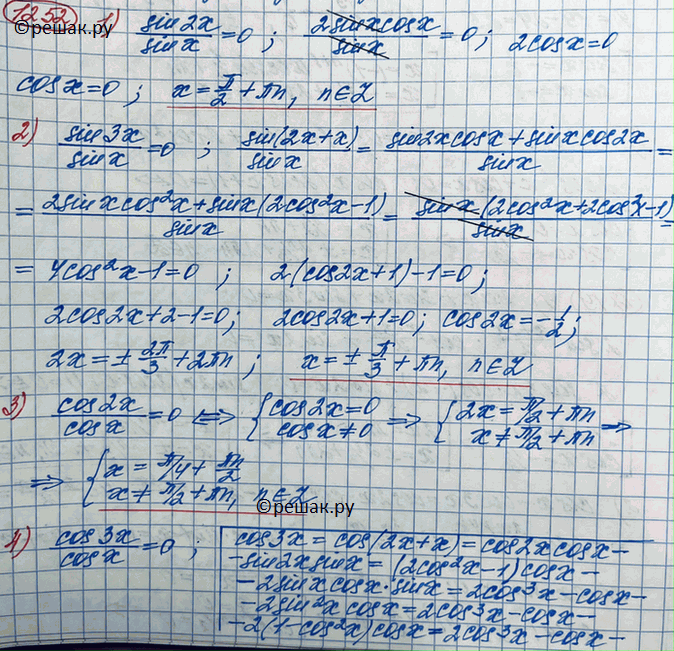 1252 1) sin2x/sinx = 0 ; 2sinxcosx/sinx = 0 ; 2cosx = 0
©решак.ру
cosx = 0 ; x = π/2 + πn, n∈Z
2) sin3x/sinx = 0 ; sin(2x+x)/sinx = (sin2xcosx + sinxcos2x)/sinx =
= (2sinxcos²x + sinx(2cos²x-1))/sinx = sinx(2cos²x+2cos²x-1)/sinx =
= 4cos²x-1=0 ; 2(cos2x+1)-1=0 ;
2cos2x+2-1=0 ; 2cos2x+1=0 ; cos2x = -1/2 ;
2x = ± 2π/3 + 2πn ; x = ± π/3 + πn, n∈Z
3) cos2x/cosx = 0 ⇔ { cos2x=0 cosx≠0 ⇒ { 2x = π/2 + πn x ≠ π/2 + πn ⇒
⇒ { x = π/4 + πn/2 x ≠ π/2 + πn, n∈Z
©решак.ру
4) cos3x/cosx = 0 ; cos3x = cos(2x+x) = cos2xcosx -
- sin2xsinx = (2cos²x-1)cosx -
- 2sinxcosx·sinx = 2cos³x - cosx -
- 2sin²xcosx = 2cos³x - cosx -
- 2(1-cos²x)cosx = 2cos³x - cosx -